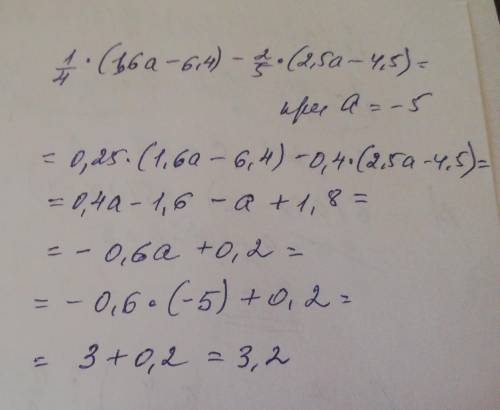 1/4 · (1,6a - 6,4) - 2/5 · (2,5a - 4,5) =
при a = -5
= 0,25 · (1,6a - 6,4) - 0,4 · (2,5a - 4,5) =
= 0,4a - 1,6 - a + 1,8 =
= - 0,6a + 0,2 =
= - 0,6 · (-5) + 0,2 =
= 3 + 0,2 = 3,2